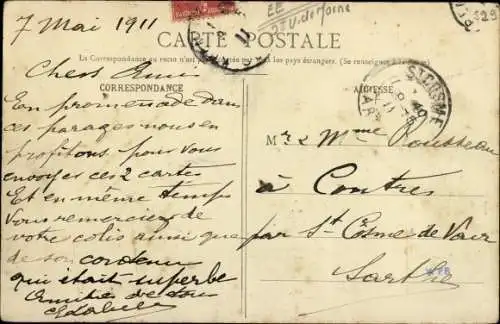 7 Mai 1911
EE
S/U. de Marne
529
CARTE POSTALE
La Correspondance au recto n'est pas les pays étrangers. (Se renseigner à
CORRESPONDANCE
ADRESSE
St COSME
SAR
Chers Amis
En promenade dans
ces parages nous en
profitons pour vous
envoyer ces 2 cartes
Et en même temps
Vous remercier de
votre colis ainsi que
de son cordeau
qui était superbe
Amitiés de tous
Mr & Mme Rousseau
à Contres
par St Cosme de Vair
Sarthe